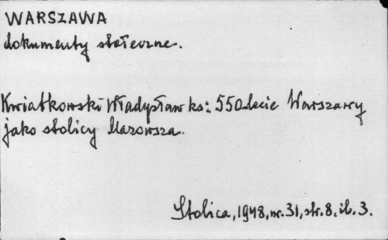 WARSZAWA
dokumenty stołeczne.
Kwiatkowski Władysław ks: 550-lecie Warszawy
jako stolicy Mazowsza.
Stolica, 1948, nr. 31, str. 8, il. 3.